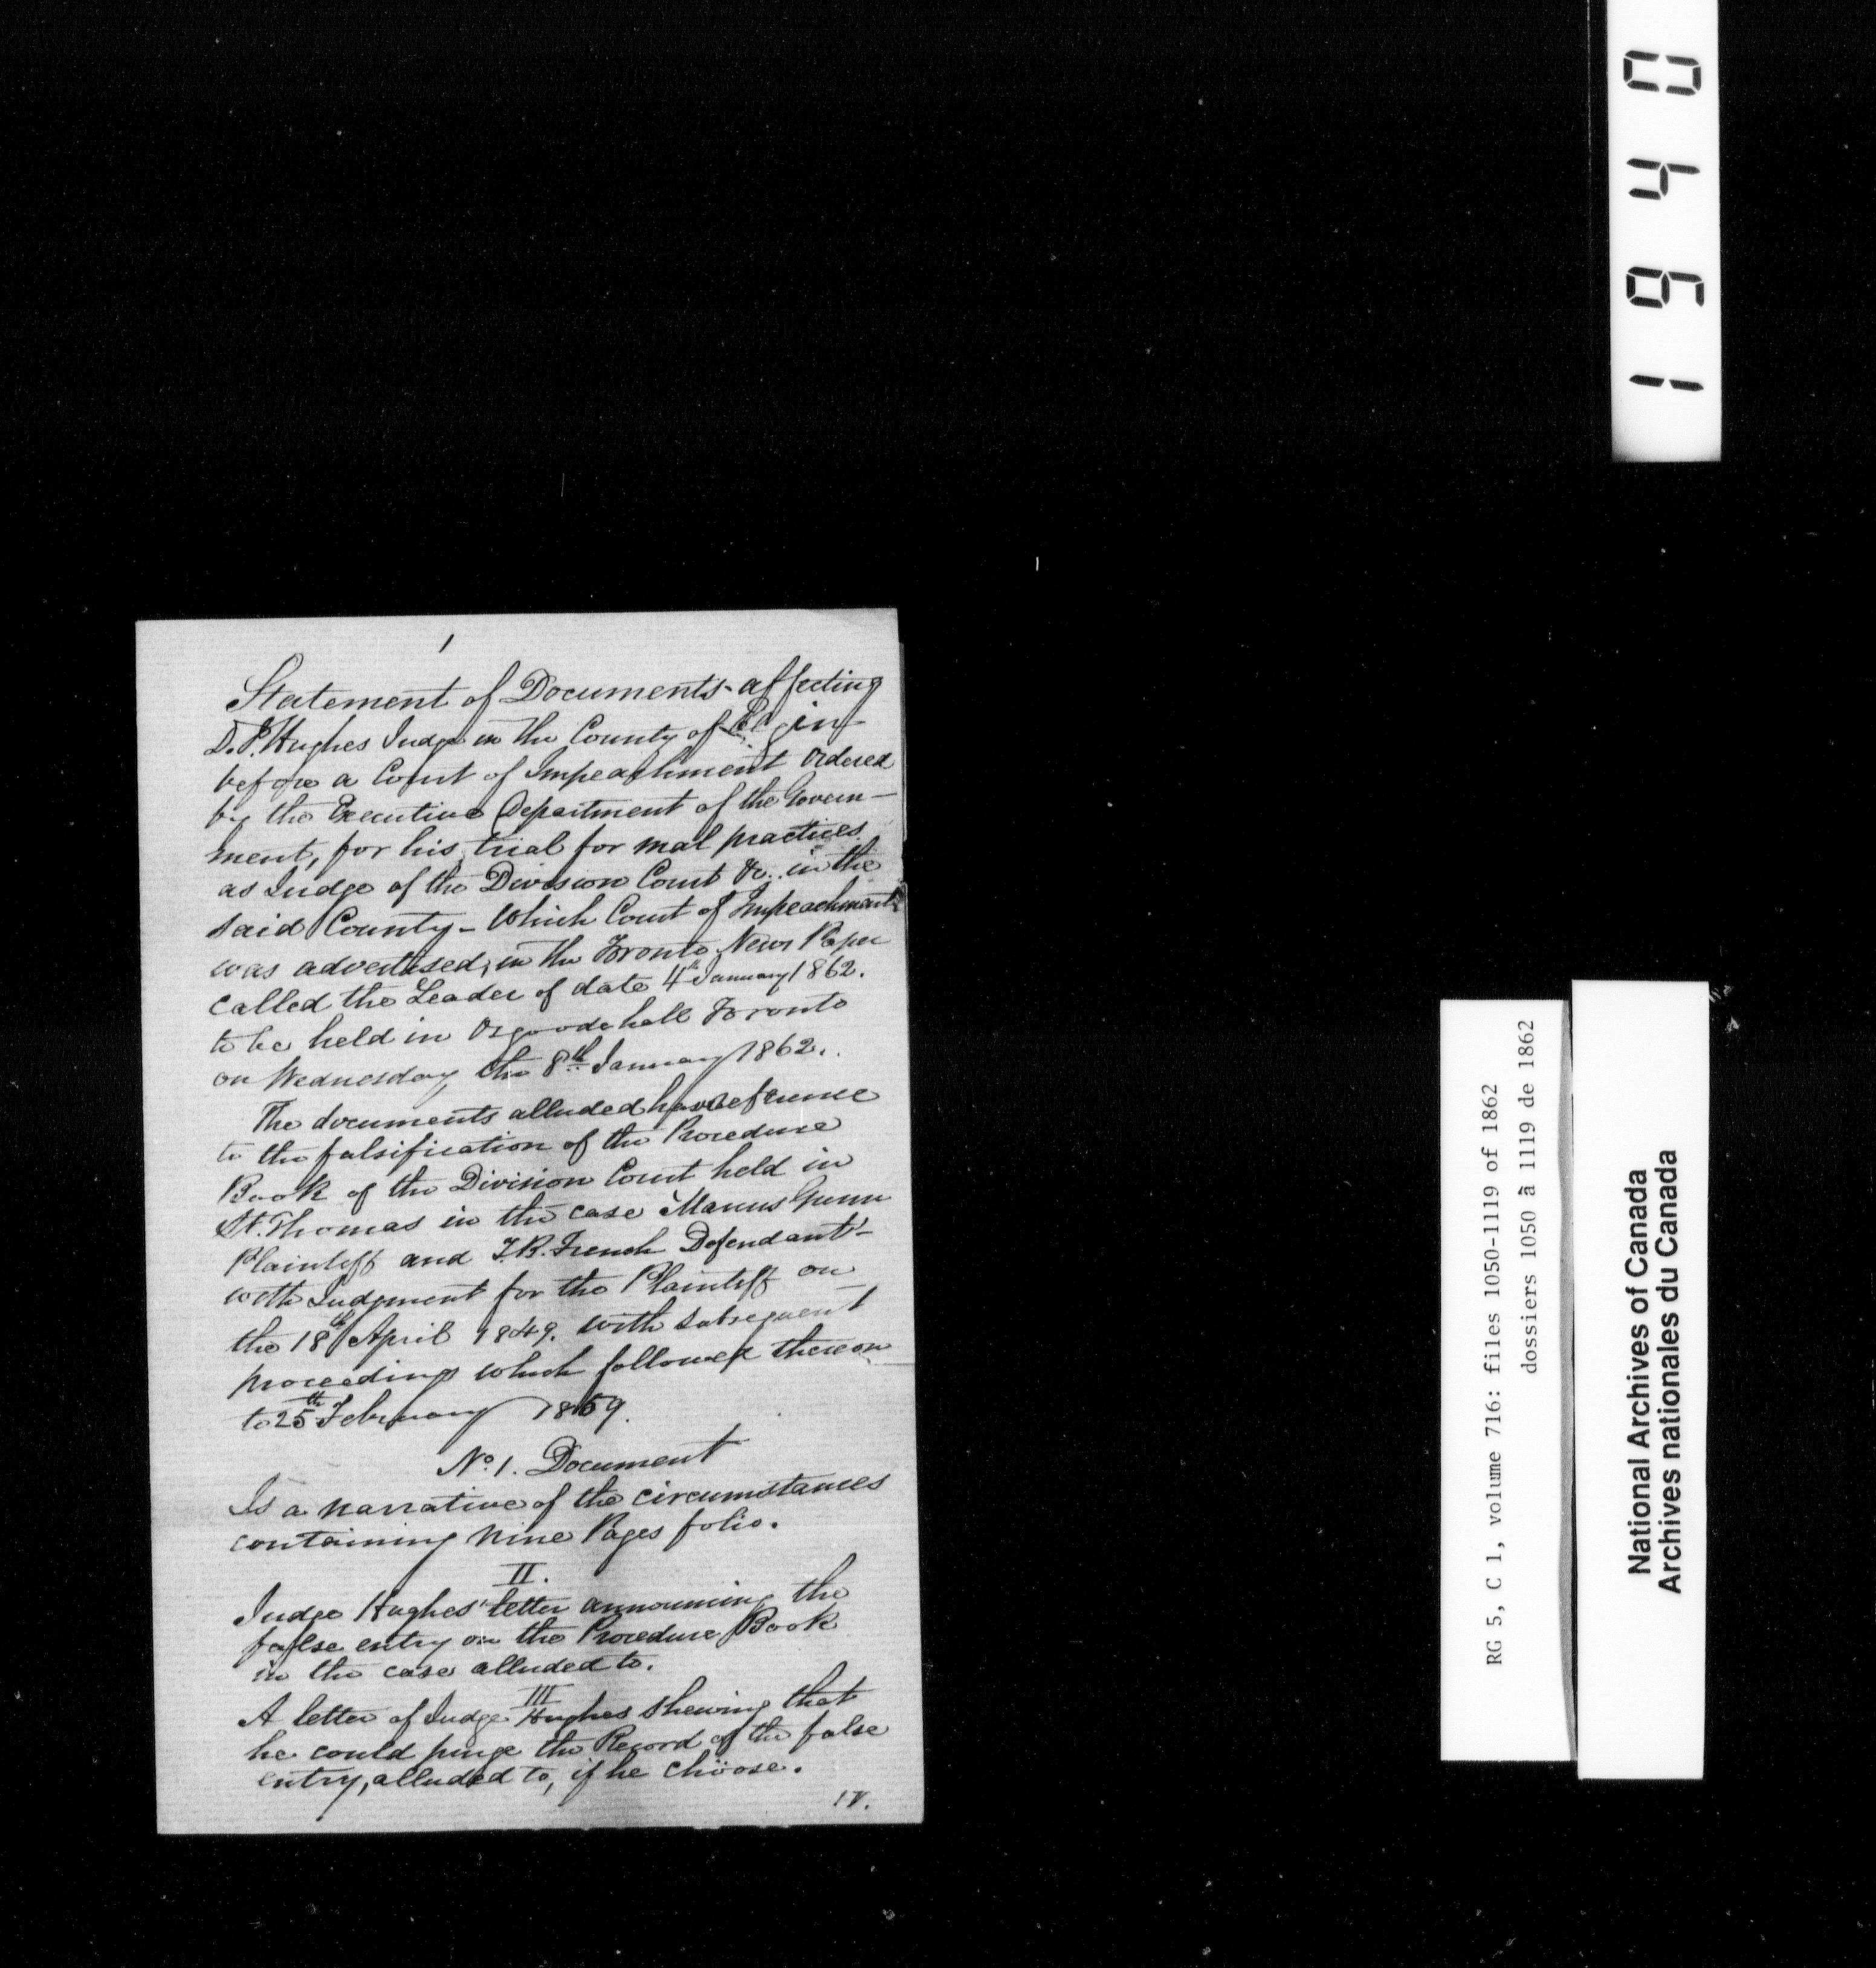 1
Statement of Documents affecting
D. J. Hughes Judge in the County of Elgin
before a Court of Impeachment ordered
by the Executive Department of the Govern-
ment, for his trial for mal practices
as Judge of the Division Court &c. in the
said County - which Court of Impeachment
was advertised, in the Toronto News Paper
called the Leader of date 4th January 1862.
to be held in Osgoode hall Toronto
on Wednesday the 8th January 1862.
The documents alluded have reference
to the falsification of the Procedure
Book of the Division Court held in
St. Thomas in the case Marcus Gunn
Plaintiff and T.B. French Defendant-
with Judgment for the Plaintiff on
the 18th April 1849. with subsequent
proceedings which followed thereon
to 25th February 1859.
No. 1. Document
Is a narrative of the circumstances
containing nine Pages folio.
II.
Judge Hughes' letter announcing the
false entry on the Procedure Book
in the case alluded to.
III
A letter of Judge Hughes shewing that
he could purge the Record of the false
entry, alluded to, if he choose.
IV.
1940
RG 5, C 1, volume 716: files 1050-1119 of 1862
dossiers 1050 à 1119 de 1862
National Archives of Canada
Archives nationales du Canada